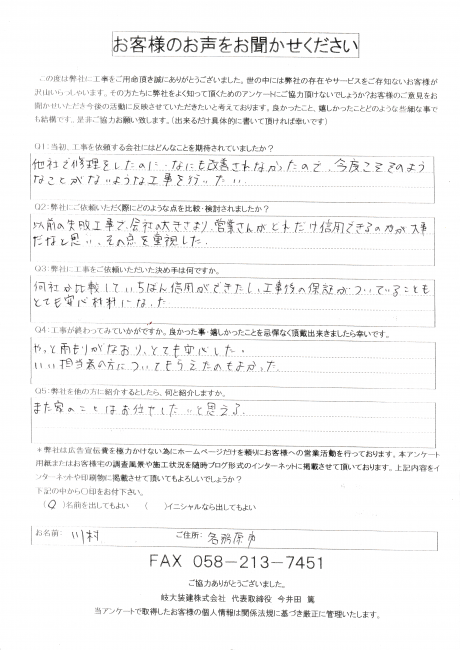 お客様のお声をお聞かせください
この度は弊社に工事をご用命頂き誠にありがとうございました。世の中には弊社の存在やサービスをご存知ないお客様が
沢山いらっしゃいます。その方たちに弊社をよく知って頂くためのアンケートにご協力頂けないでしょうか?お客様のご意見をお
聞かせいただき今後の活動に反映させていただきたいと考えております。良かったこと、嬉しかったことどのような些細な事で
も結構です。是非ご協力お願い致します。(出来るだけ具体的に書いて頂ければ幸いです)
Q1:当初、工事を依頼する会社にはどんなことを期待されていましたか?
他社で修理をしたのに、なにも改善されなかったので、今度こそそのよう
なことがないような工事を行いたい。
Q2:弊社にご依頼いただく際にどのような点を比較・検討されましたか?
以前の失敗工事で、会社の大きさより、営業さんがどれだけ信用できるのかが大事
だなと思い、その点を重視した。
Q3:弊社に工事をご依頼いただいた決め手は何ですか。
何社か比較していちばん信用ができたし、工事後の保証がついていることも
とても安心材料になった。
Q4:工事が終わってみていかがですか。良かった事・嬉しかったことを忌憚なく頂戴出来きましたら幸いです。
やっと雨もりがなおり、とても安心した。
いい担当者の方についてもらえたのもよかった。
Q5:弊社を他の方に紹介するとしたら、何と紹介しますか。
また家のことはお任せしたいと思える。
*弊社は広告宣伝費を極力かけない為にホームページだけを頼りにお客様への営業活動を行っております。本アンケート
用紙またはお客様宅の調査風景や施工状況を随時ブログ形式のインターネットに掲載させて頂いております。上記内容をイ
ンターネットや印刷物に掲載させて頂いてもよろしいでしょうか?
下記の中から〇印をお付下さい。
(〇)名前を出してもよい ( )イニシャルなら出してもよい
お名前: 川村 ご住所: 各務原市
FAX 058-213-7451
ご協力ありがとうございました。
岐大装建株式会社 代表取締役 今井田 篤
当アンケートで取得したお客様の個人情報は関係法規に基づき厳正に管理いたします。